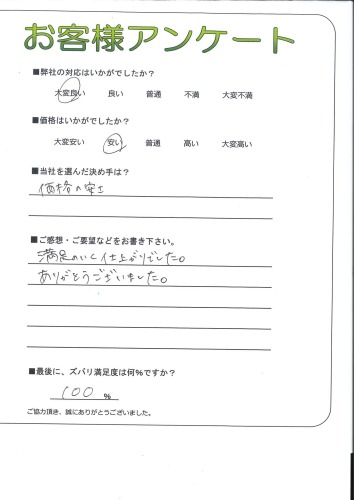 お客様アンケート
■弊社の対応はいかがでしたか?
大変良い 良い 普通 不満 大変不満
■価格はいかがでしたか?
大変安い 安い 普通 高い 大変高い
■当社を選んだ決め手は?
価格の安さ
■ご感想・ご要望などをお書き下さい。
満足のいく仕上がりでした。
ありがとうございました。
■最後に、ズバリ満足度は何%ですか?
100 %
ご協力頂き、誠にありがとうございました。